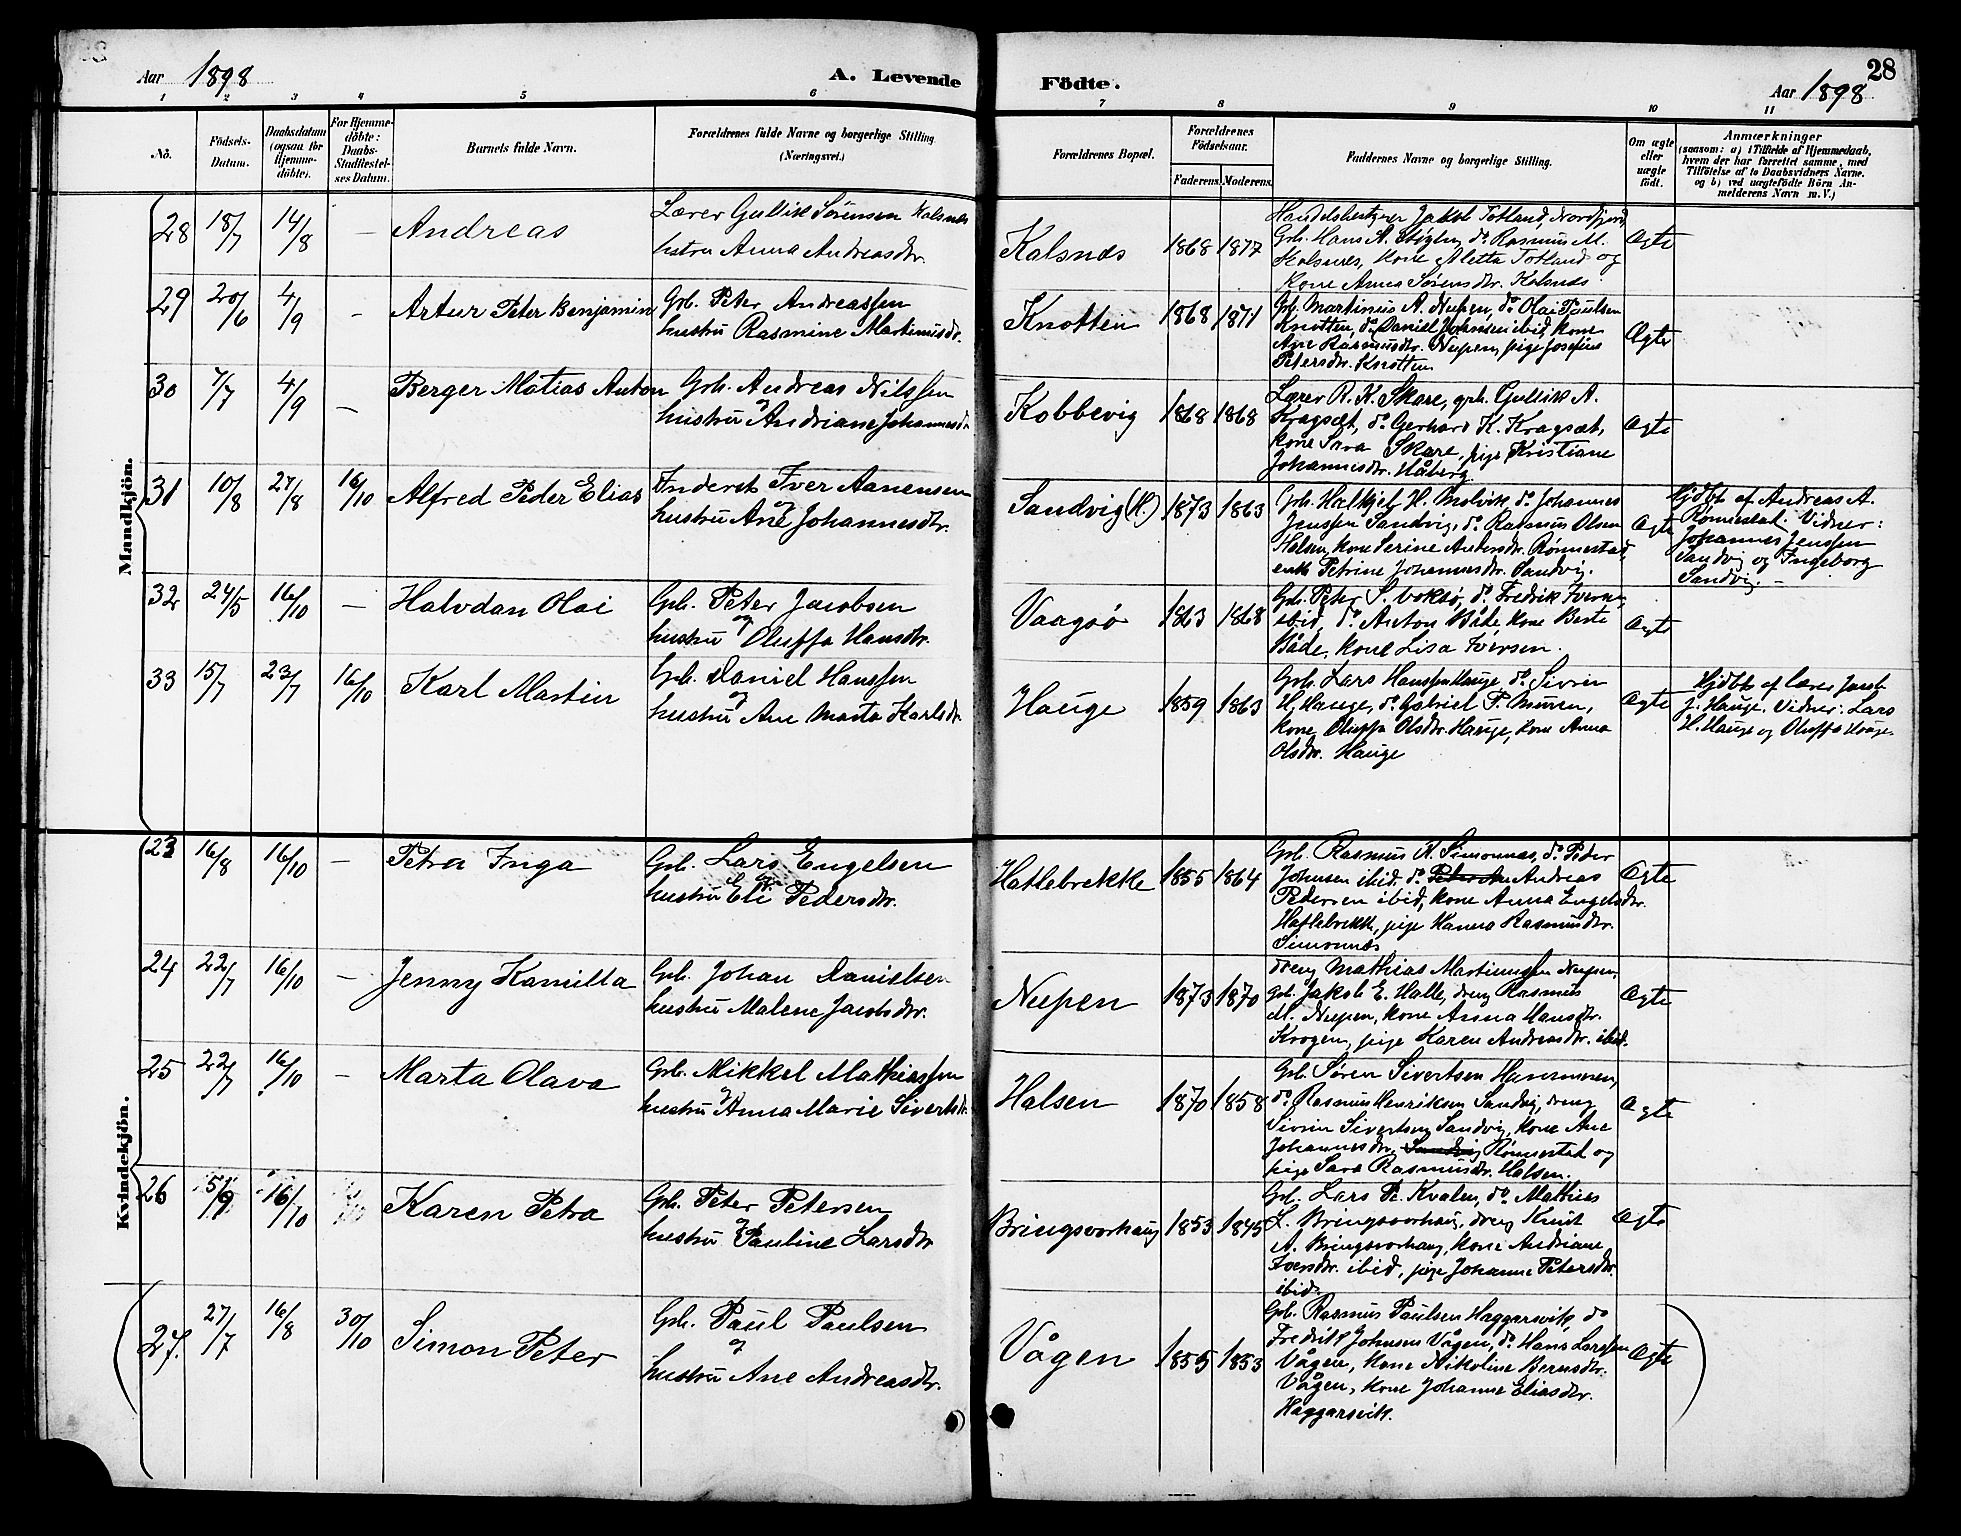 Aar 1898
A. Levende
Födte.
Aar 1898
28
1 2 3 4 5 6 7 8 9 10 11
No.
Födsels-
Datum.
Daabsdatum
(ogsaa for
Hjemme-
döbte).
For Hjemme-
döbte:
Daabs-
Stadfæstel-
ses Datum.
Barnets fulde Navn.
Forældrenes fulde Navne og borgerlige Stilling
(Næringsvei.)
Forældrenes Bopæl.
Forældrenes
Födselsaar.
Faderens. Moderens.
Faddernes Navne og borgerlige Stilling.
Om ægte
eller
uægte
födt.
Anmærkninger
(saasom: a) i Tilfælde af Hjemmedaab,
hvem der har forrettet samme, med
Tilföielse af to Daabsvidners Navne.
og b) ved uægtefödte Börn An-
melderens Navn m. V.)
Mandkjön.
28 18/7 14/8 — Andreas
Lærer Gullik Sörensen Kalsnes
hustru Anna Andreasdtr.
Kalsnes 1868 1877
Handelsbestyrer Jakob Totland, Nordfjord,
Gbr. Hans A. do Rasmus M.
Kalsnes, Kone Aletta Totland og
Kone Anna Sörensdtr. Kalsnes
Ægte
29 20/6 4/9 — Artur Peter Benjamin
Gbr. Peter Andreassen
hustru Rasmine Martinusdr.
Knotten 1868 1871
Gbr. Martinius A. Nupen, do Olai Paulsen
Knotten, do Daniel Johnsen ibid, kone
Ane Rasmusdtr. Nupen, pige Josefine
Petersdtr. Knotten
Ægte
30 7/7 4/9 — Berger Matias Anton
Gbr. Andreas Nilssen
hustru og Andriane Johannesdr.
Kobbevig 1868 1868
Lærer R. K. Skare, gbr. Gullik A.
Kragsæt, do Gerhard K. Kragsæt,
kone Sara Skare, pige Kristiane
Johannesdtr. Håberg
Ægte
31 10/8 27/8 16/10 Alfred Peder Elias
Inderst Iver Aanensen
hustru og Ane Johannesdtr.
Sandvig (H.) 1873 1863
Gbr. Halkjel H. Molvik do Johannes
Jenssen Sandvig, do Rasmus Olsen
Halsen, kone Serine Andersdtr. Rönnestad,
enke Petrine Johannesdtr. Sandvig.
Ægte
Hjdbt af Andreas A.
Rönnestad. Vidner:
Johannes Jenssen
Sandvig og Ingeborg
Sandvig. —
32 24/5 16/10 — Halvdan Olai
Gbr. Peter Jacobsen
og
hustru Oluffa Hansdtr.
Vaagsö 1863 1868
Gbr. Peter S. do Fredrik Iversen
ibid, do Anton Både, kone Berte
Både, kone Lisa Iversen.
Ægte
33 15/7 23/7 16/10 Karl Martin
Gbr. Daniel Hanssen
og
hustru Ane Marta Karlsdr.
Hauge 1859 1863
Gbr. Lars Hanssen Hauge do Sivrin
H. Hauge, do Gabriel P.
kone Oluffa Olsdtr. Hauge, kone Anna
Olsdtr. Hauge
Ægte
Hjdbt af lærer Jacob
J. Hauge. Vidner: Lars
H. Hauge og Oluffa Hauge.
Kvindekjön.
23 16/8 16/10 — Petra Inga
Gbr. Lars Engelsen
og
hustru Eli Pedersdtr.
Hatlebrekke 1855 1864
Gbr. Rasmus A. Simonnæs, do Peder
Johnsen ibid. do Andreas
Pedersen ibid, kone Anna Engelsdtr.
Hatlebrekke, pige Hanna Rasmusdtr.
Simonnæs
Ægte
24 22/7 16/10 — Jenny Kamilla
Gbr. Johan Danielsen
hustru Malene Jacobsdtr.
Nupen 1873 1870
dreng Mathias Martinussen Nupen,
gbr. Jakob E. Halle, dreng Rasmus
M. Nupen, kone Anna Hansdtr.
Krogen, pige Karen Andreasdtr. ibid.
Ægte
25 22/7 16/10 — Marta Olava
Gbr. Mikkel Mathiassen
og
hustru Anna Marie Sivertsdr.
Halsen 1870 1858
Gbr Sören Sivertsen
do Rasmus Henriksen Sandvig, dreng
Sivrin Sivertsen Sandvig, kone Ane
Johannesdtr. Sandvig Rönnestad og
pige Sara Rasmusdtr. Halsen.
Ægte
26 5/9 16/10 Karen Petra
Gbr. Peter Petersen
og
hustru Pauline Larsdtr
Bringsvorhaug 1853 1845
Gbr. Lars P. Kvalen, do Mathias
L. Bringsvorhaug, dreng Knut
A. Bringsvorhaug, kone Andriane
Iversdtr. ibid, pige Johanne Petersdtr.
ibid.
Ægte
27. 27/7 16/8 30/10 Simon Peter
Gbr. Paul Paulsen
og
hustru Ane Andreasdtr.
Vågen 1855 1853
Gbr. Rasmus Paulsen Haggarsvik, do
Fredrik Johnsen Vågen, do Hans Larssen
Vågen, kone Nikoline Bernsdtr.
Vågen, kone Johanne Eliasdtr.
Haggarsvik.
Ægte